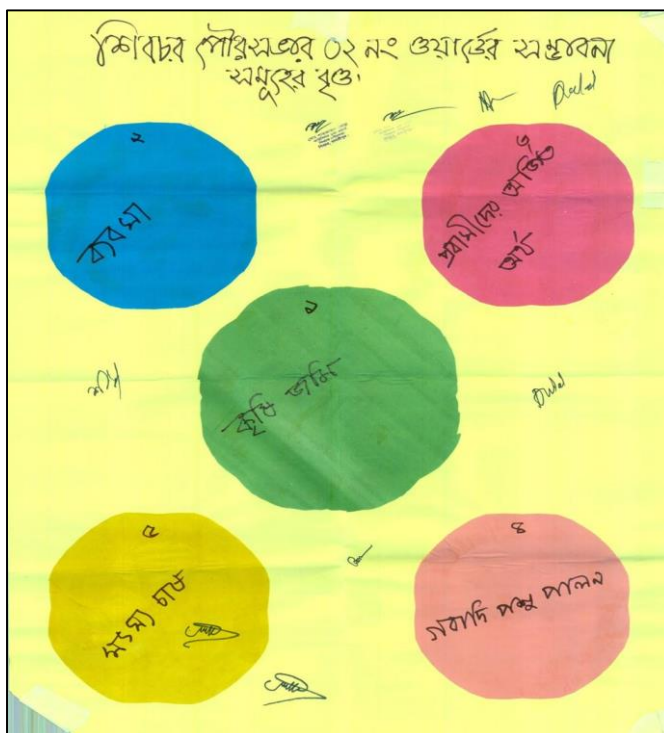 শিবচর পৌরসভার ০২ নং ওয়ার্ডের সম্ভাবনা
সমূহের বৃত্ত।
Dulal
২
ব্যবসা
৩
প্রবাসীদের অর্জিত
অর্থ
১
কৃষি জমি
Dulal
৫
মৎস্য চাষ
৪
গবাদি পশু পালন